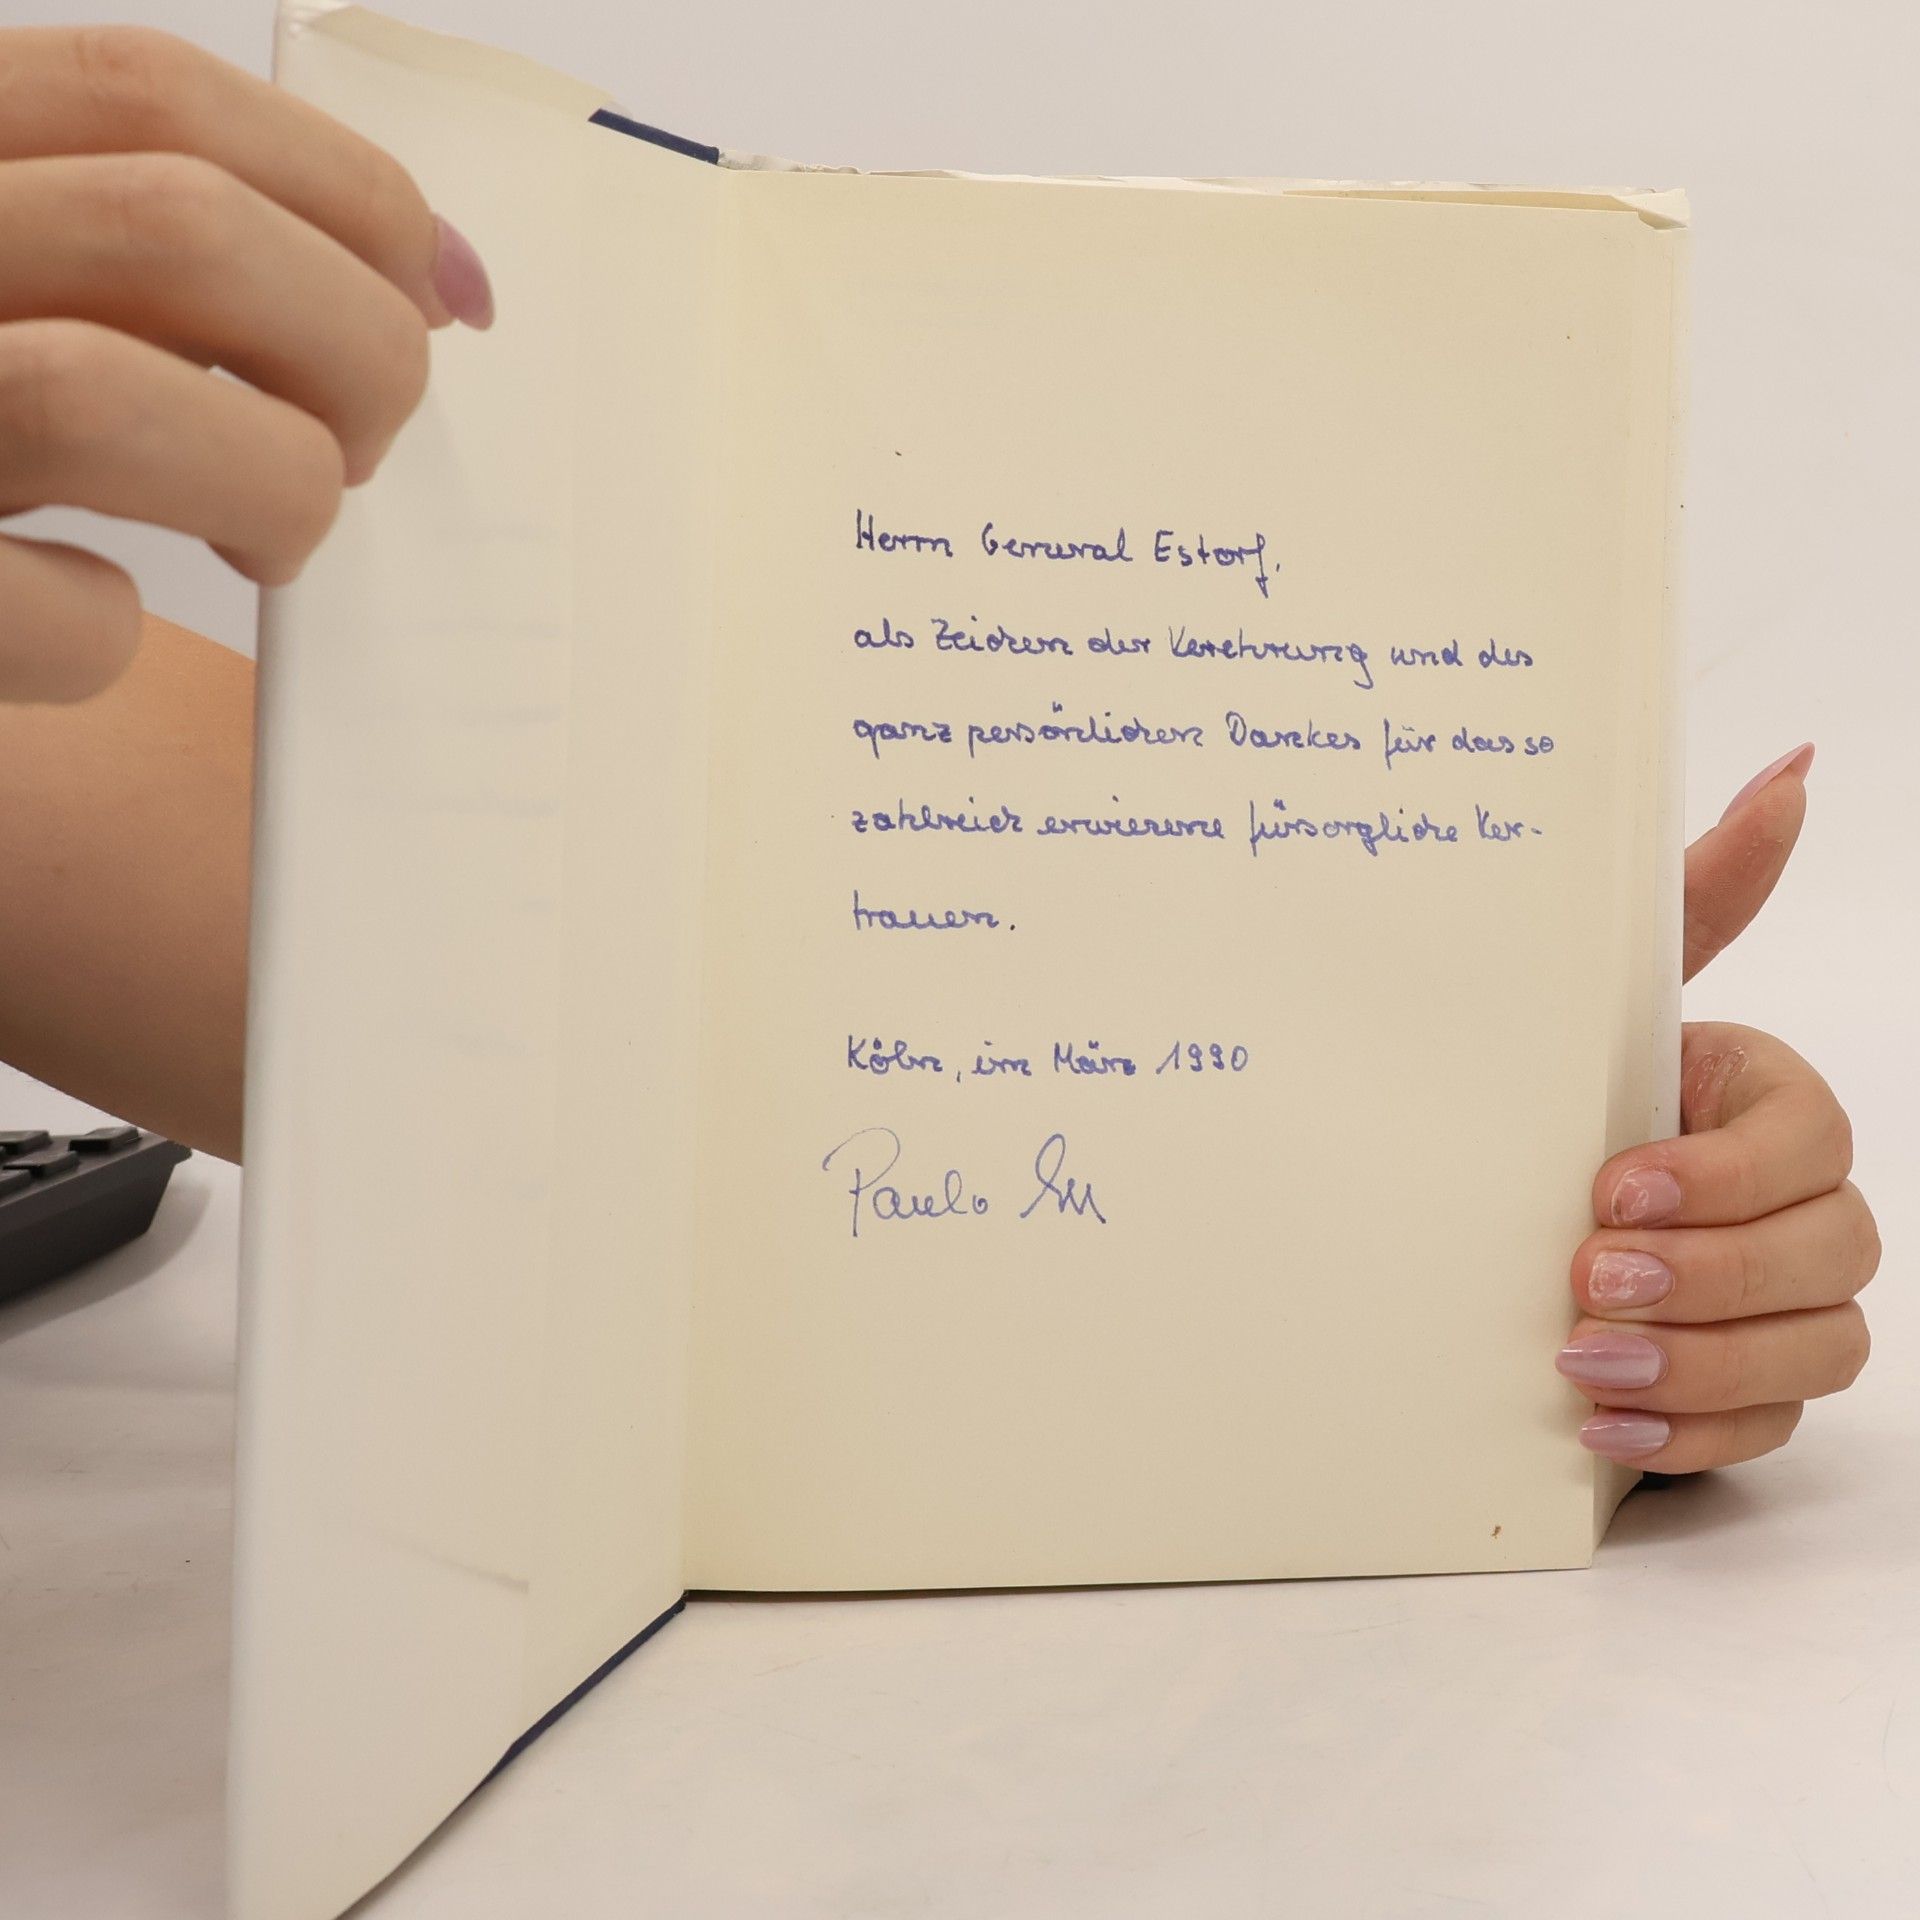 Herrn General Estorf,
als Zeichen der Verehrung und des
ganz persönlichen Dankes für das so
zahlreich erwiesene fürsorgliche Ver-
trauen.
Köln, im März 1990
Paulo